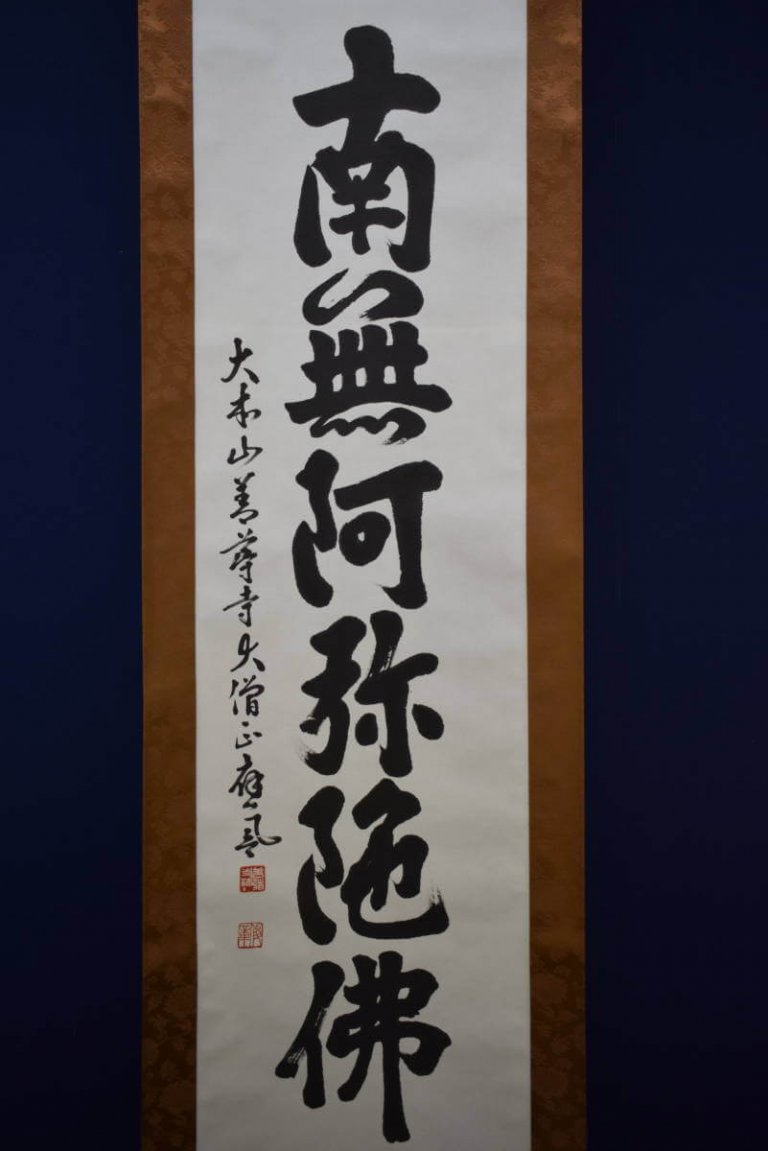 南無阿弥陀佛
大本山善導寺大僧正